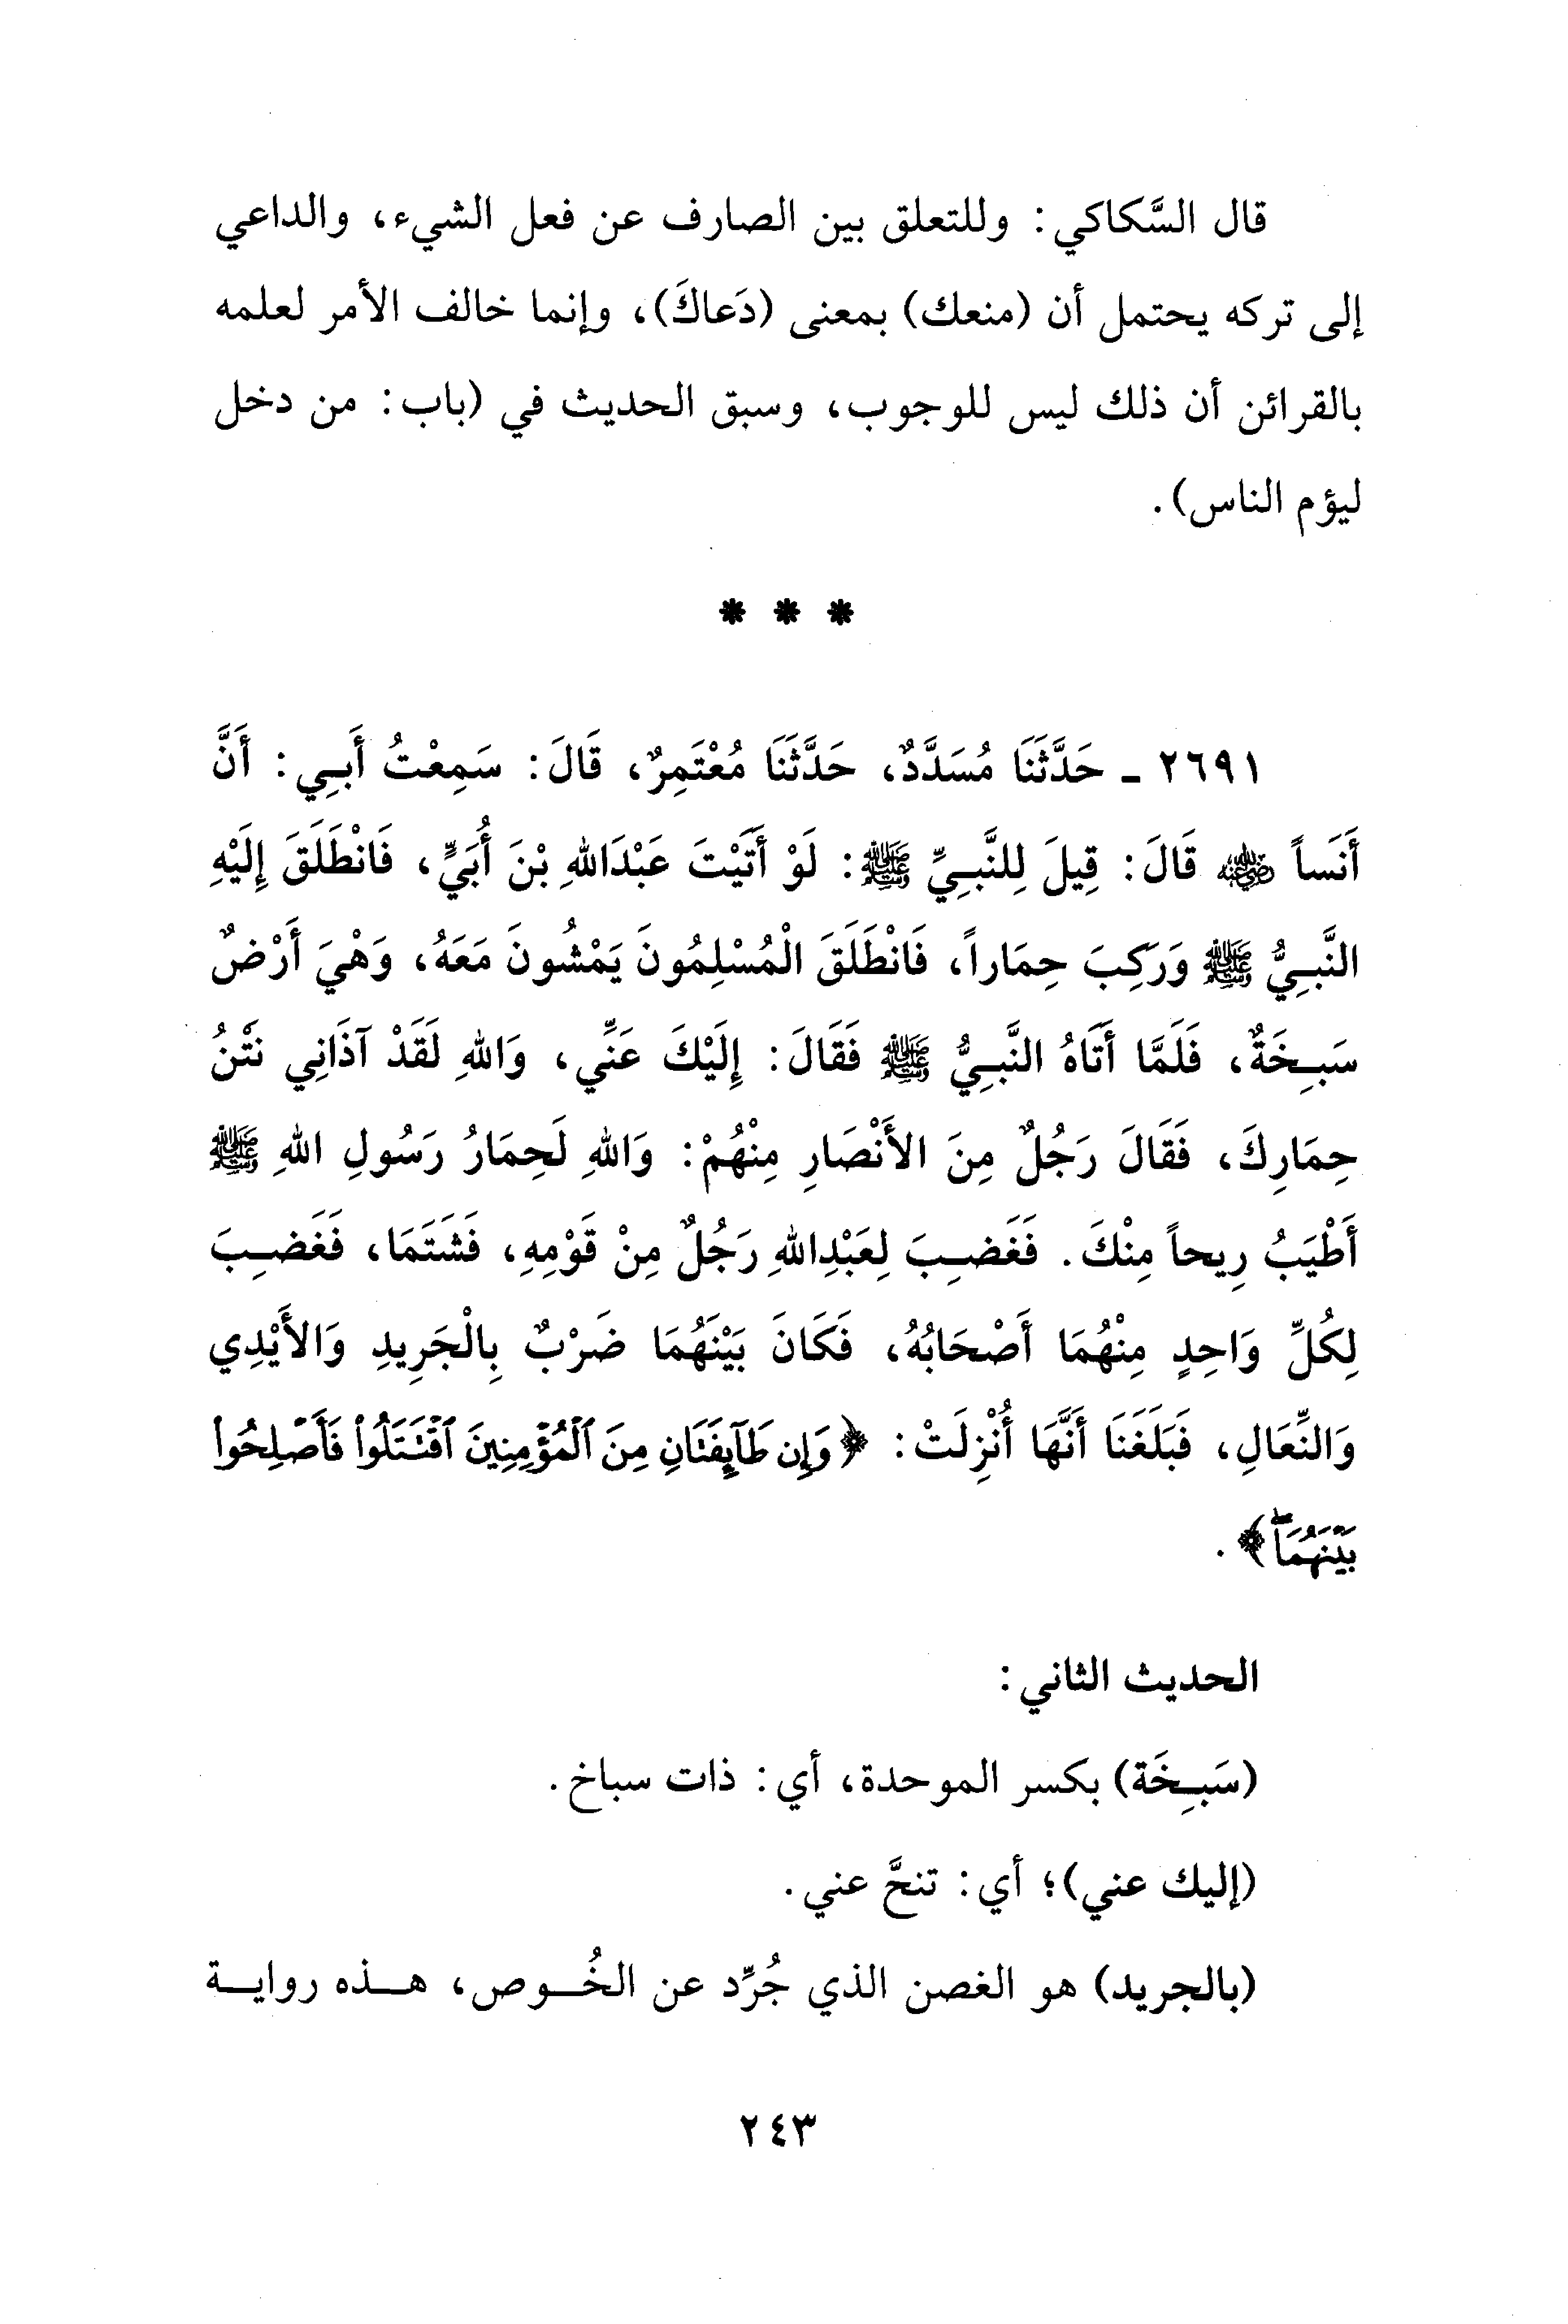 قال السَّكاكي: وللتعلق بين الصارف عن فعل الشيء، والداعي
إلى تركه يحتمل أن (منعك) بمعنى (دَعاكَ)، وإنما خالف الأمر لعلمه
بالقرائن أن ذلك ليس للوجوب، وسبق الحديث في (باب: من دخل
ليؤم الناس).
* * *
٢٦٩١ - حَدَّثَنَا مُسَدَّدٌ، حَدَّثَنَا مُعْتَمِرٌ، قَالَ: سَمِعْتُ أَبِي: أَنَّ
أَنَساً ﵁ قَالَ: قِيلَ لِلنَّبِيِّ ﷺ: لَوْ أَتَيْتَ عَبْدَاللهِ بْنَ أُبَيٍّ، فَانْطَلَقَ إِلَيْهِ
النَّبِيُّ ﷺ وَرَكِبَ حِمَاراً، فَانْطَلَقَ الْمُسْلِمُونَ يَمْشُونَ مَعَهُ، وَهْيَ أَرْضٌ
سَبِخَةٌ، فَلَمَّا أَتَاهُ النَّبِيُّ ﷺ فَقَالَ: إِلَيْكَ عَنِّي، وَاللهِ لَقَدْ آذَانِي نَتْنُ
حِمَارِكَ، فَقَالَ رَجُلٌ مِنَ الأَنْصَارِ مِنْهُمْ: وَاللهِ لَحِمَارُ رَسُولِ اللهِ ﷺ
أَطْيَبُ رِيحاً مِنْكَ. فَغَضِبَ لِعَبْدِاللهِ رَجُلٌ مِنْ قَوْمِهِ، فَشَتَمَا، فَغَضِبَ
لِكُلِّ وَاحِدٍ مِنْهُمَا أَصْحَابُهُ، فَكَانَ بَيْنَهُمَا ضَرْبٌ بِالْجَرِيدِ وَالأَيْدِي
وَالنِّعَالِ، فَبَلَغَنَا أَنَّهَا أُنْزِلَتْ: ﴿وَإِن طَآئِفَتَانِ مِنَ ٱلْمُؤْمِنِينَ ٱقْتَتَلُوا۟ فَأَصْلِحُوا۟
بَيْنَهُمَا ۖ﴾.
الحديث الثاني:
(سَبِخَة) بكسر الموحدة، أي: ذات سباخ.
(إليك عني)؛ أي: تنحَّ عني.
(بالجريد) هو الغصن الذي جُرِّد عن الخُوص، هذه رواية
٢٤٣